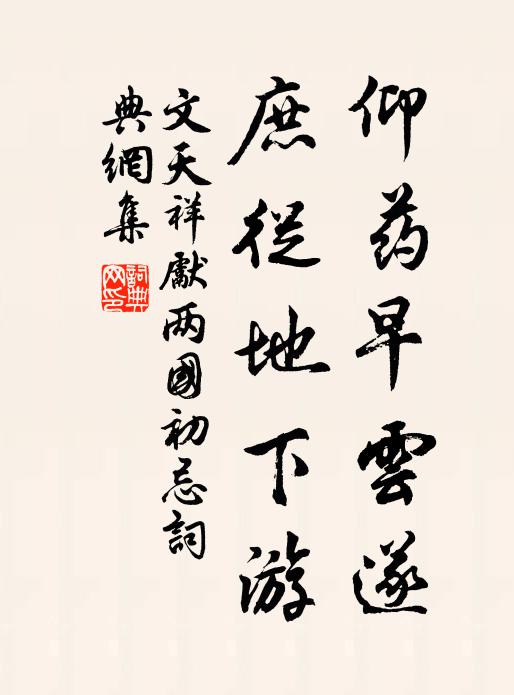 仰药早雲遂
庶從地下游
文天祥獻两國初忌詞
典網集
詞典
网印